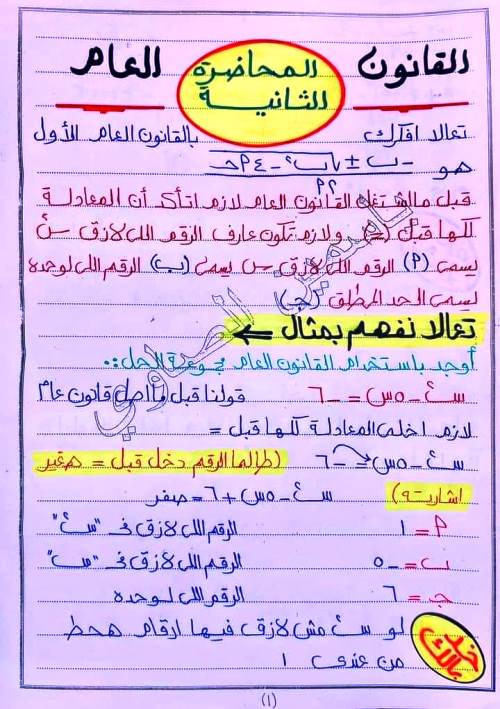 القانون العام
المحاضرة
الثانية
تعالا افكرك بالقانون العام الأول
هو -ب ± √ب² - ٤ م ج / ٢ م
قبل ما اشتغل القانون العام لازم اتأكد أن المعادلة
كلها قبل (=) ولازم تكون عارف الرقم اللى لازق س²
يسمى (م) الرقم اللى لازق س يسمى (ب) الرقم اللى لوحده
يسمى الحد المطلق (ج)
تعالا نفهم بمثال ⇐
أوجد باستخدام القانون العام مجموعة الحل:
س² - ٥س = - ٦ قولنا قبل ما احل قانون عام
لازم اخلى المعادلة كلها قبل =
س² - ٥س = - ٦ (طالما الرقم دخل قبل = هغير
اشارته) س² - ٥س + ٦ = صفر
م = ١ الرقم اللى لازق فى "س²"
ب = - ٥ الرقم اللى لازق فى "س"
ج = ٦ الرقم اللى لوحده
خد بالك
لو س² مش لازق فيها ارقام هحط
من عندى ١
(١)